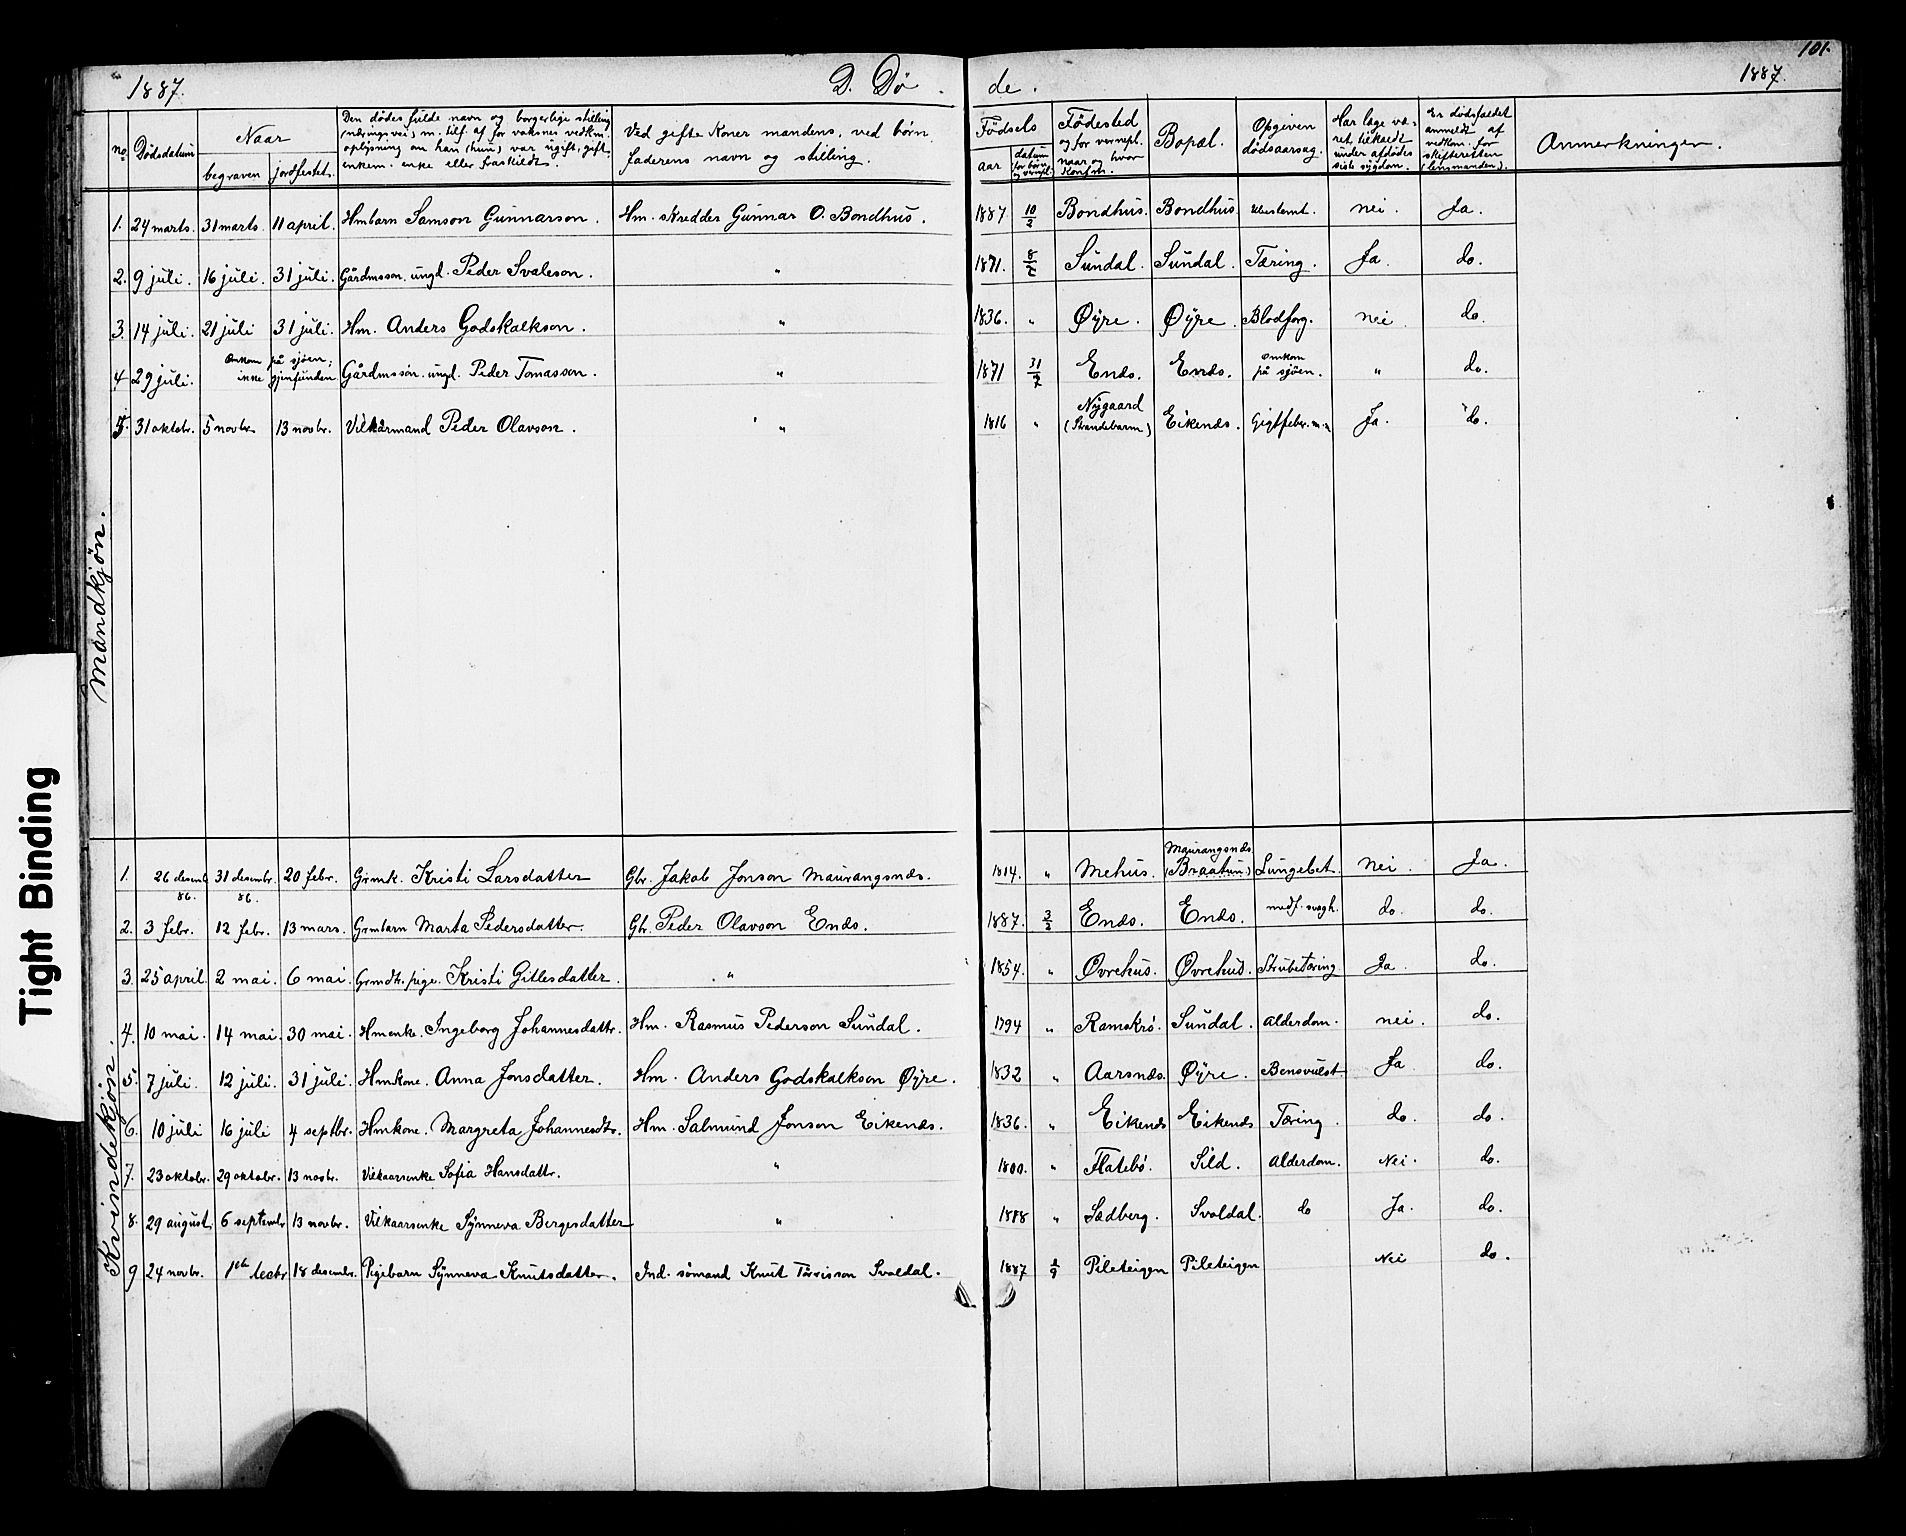 101.
1887. D. Dø . de . 1887.
no Dødsdatum Naar begraven jordfestet. Den dødes fulde navn og borgerlige stilling (næringsvei) m. tilf. af for voksnes vedkm. oplysning om han (hun) var ugift, gift, enkem. enke eller fraskildt. Ved gifte koner mandens, ved børn faderens navn og stilling. Fødsels aar datum for børn og vernepl. Fødested og for vernepl. naar og hvor konfm. Bopæl. Opgiven dødsaarsag. Har læge været tilkaldt under afdødes sidste sygdom. Er dødsfaldet anmeldt af vedkom. for skifteretten (lensmanden). Anmerkninger.
Mandkjøn.
1. 24 marts. 31 marts. 11 april. Hmbarn Samson Gunnarson. Hm. skredder Gunnar O. Bondhus. 1887 10/2 Bondhus. Bondhus. Ubestemt. nei. Ja.
2. 9 juli. 16 juli. 31 juli. Gårdmsson. ungd. Peder Svaleson. " 1871. 8/2 Sundal. Sundal. Tæring. Ja. do.
3. 14 juli. 21 juli 31 juli. Hm. Anders Godskalkson. " 1836. " Øyre. Øyre. Blodforg. nei. do.
4 29 juli. Omkom på sjøen; ikke gjenfunden Gårdmsson. ungd. Peder Tomasson. " 1871 31/7 Ends. Ends. Omkom på sjøen. " do.
5. 31 oktobr. 5 novbr. 13 novbr. Vilkårmand Peder Olavson. " 1816 " Nygaard (Strandebarm) Eikends. Gigtfeber. m.m Ja. do.
Kvindekjøn.
1. 26 desemb 86. 31 desembr. 86. 20 febr. Grmk. Kristi Larsdatter Gbr. Jakob Jonson Maurangsnds. 1814. " Mehus. Maurangsnds. (Braatun) Lungebet. Nei. Ja.
2. 3 febr. 12 febr. 13 mars. Grmbarn Marta Pedersdatter. Gbr. Peder Olavson Ends. 1887. 3/2 Ends. Ends. medf. svagh. do. do.
3. 25 april 2 mai. 6 mai. Grmdtr. pige. Kristi Gitlesdatter. " 1854. " Øvrehus. Øvrehus. Strubetæring Ja. do.
4. 10 mai. 14 mai. 30 mai. Hmenke. Ingeborg Johannesdattr. Hm. Rasmus Pederson Sundal. 1794 " Ramskrø. Sundal. Alderdom. nei. do.
5. 7 juli. 12 juli. 31 juli. Hmkone. Anna Jonsdatter. Hm. Anders Godskalkson Øyre. 1832 " Aarsnds. Øyre. Bensvulst. Ja do.
6. 10 juli 16 juli 4 septbr. Hmkone. Margreta Johannesdtr. Hm. Salmund Jonson Eikends. 1836. " Eikends Eikends Tæring. do. do.
7. 23 oktobr. 29 oktobr. 13 novbr. Vilkaarsenke Sofia Hansdattr. " 1800. " Flatebø. Sild. Alderdom. Nei. do.
8. 29 august 6 septembr 13 novbr. Vilkaarsenke Synneva Bergesdatter " 1818 " Sædberg. Svoldal. do Ja. do.
9 24 novbr. 1ste decbr 18 desembr. Pigebarn Synneva Knutsdatter. Ind. sømand Knut Torrisson Svoldal. 1887 Pileteigen Pileteigen Nei do.
Tight Binding